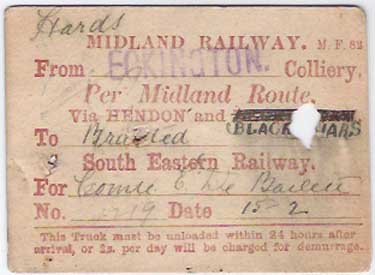 Hards
MIDLAND RAILWAY. M. F. 82
From ECKINGTON. Colliery.
Per Midland Route
Via HENDON and
To Brasted (BLACKFRIARS
South Eastern Railway.
For Comte C. De Baillet
No. 1719 Date 15-2
This Truck must be unloaded within 24 hours after
arrival, or 2s. per day will be charged for demurrage.